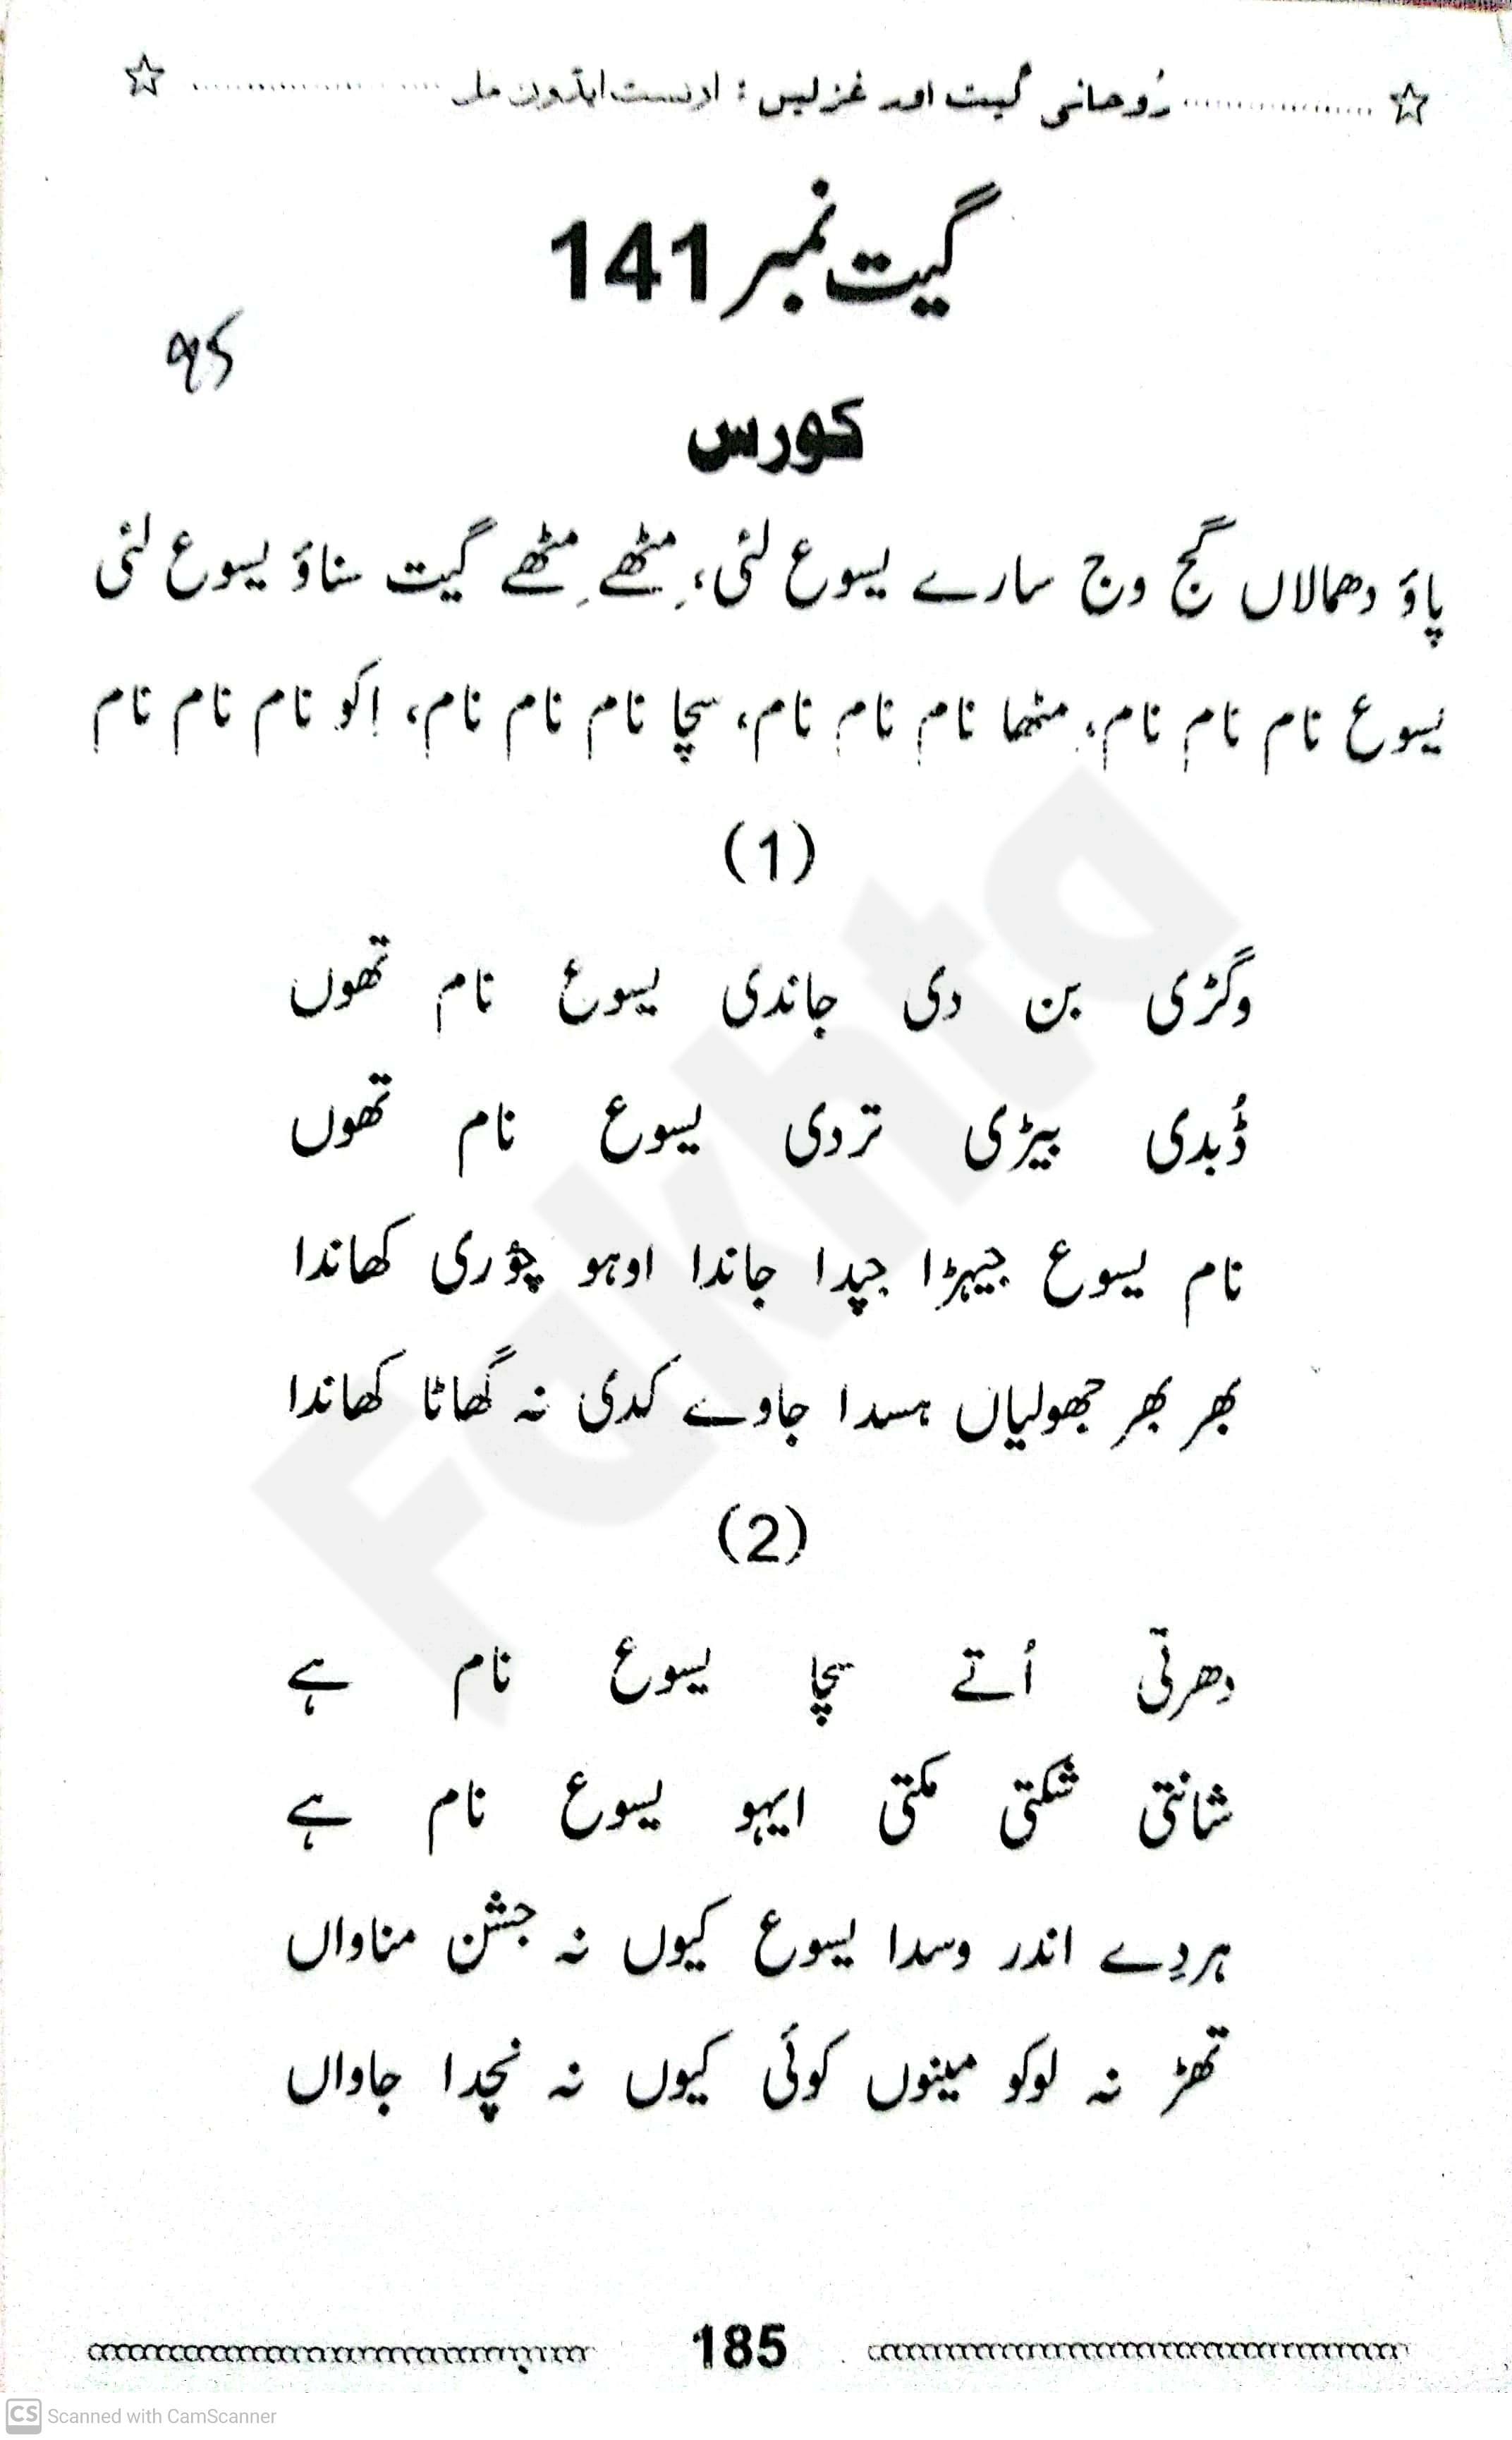 رُوحانی گیت اور غزلیں : ارنسٹ ایڈون مل
گیت نمبر 141
کورس
پاؤ دھمالاں گج وج سارے یسوع لئی، مِٹھے مِٹھے گیت سناؤ یسوع لئی
یسوع نام نام نام، مِٹھا نام نام نام، سچا نام نام نام، اِکو نام نام نام
(1)
وگڑی بن دی جاندی یسوع نام تھوں
ڈُبدی بیڑی تردی یسوع نام تھوں
نام یسوع جیہڑا جپدا جاندا اوہو چؤری کھاندا
بھر بھر جھولیاں ہسدا جاوے کدی نہ گھاٹا کھاندا
(2)
دھرتی اُتے سچا یسوع نام ہے
شانتی شکتی مکتی ایہو یسوع نام ہے
ہردِے اندر وسدا یسوع کیوں نہ جشن مناواں
تھڑ نہ لوکو مینوں کوئی کیوں نہ نچدا جاواں
185
CS Scanned with CamScanner
Fakhta